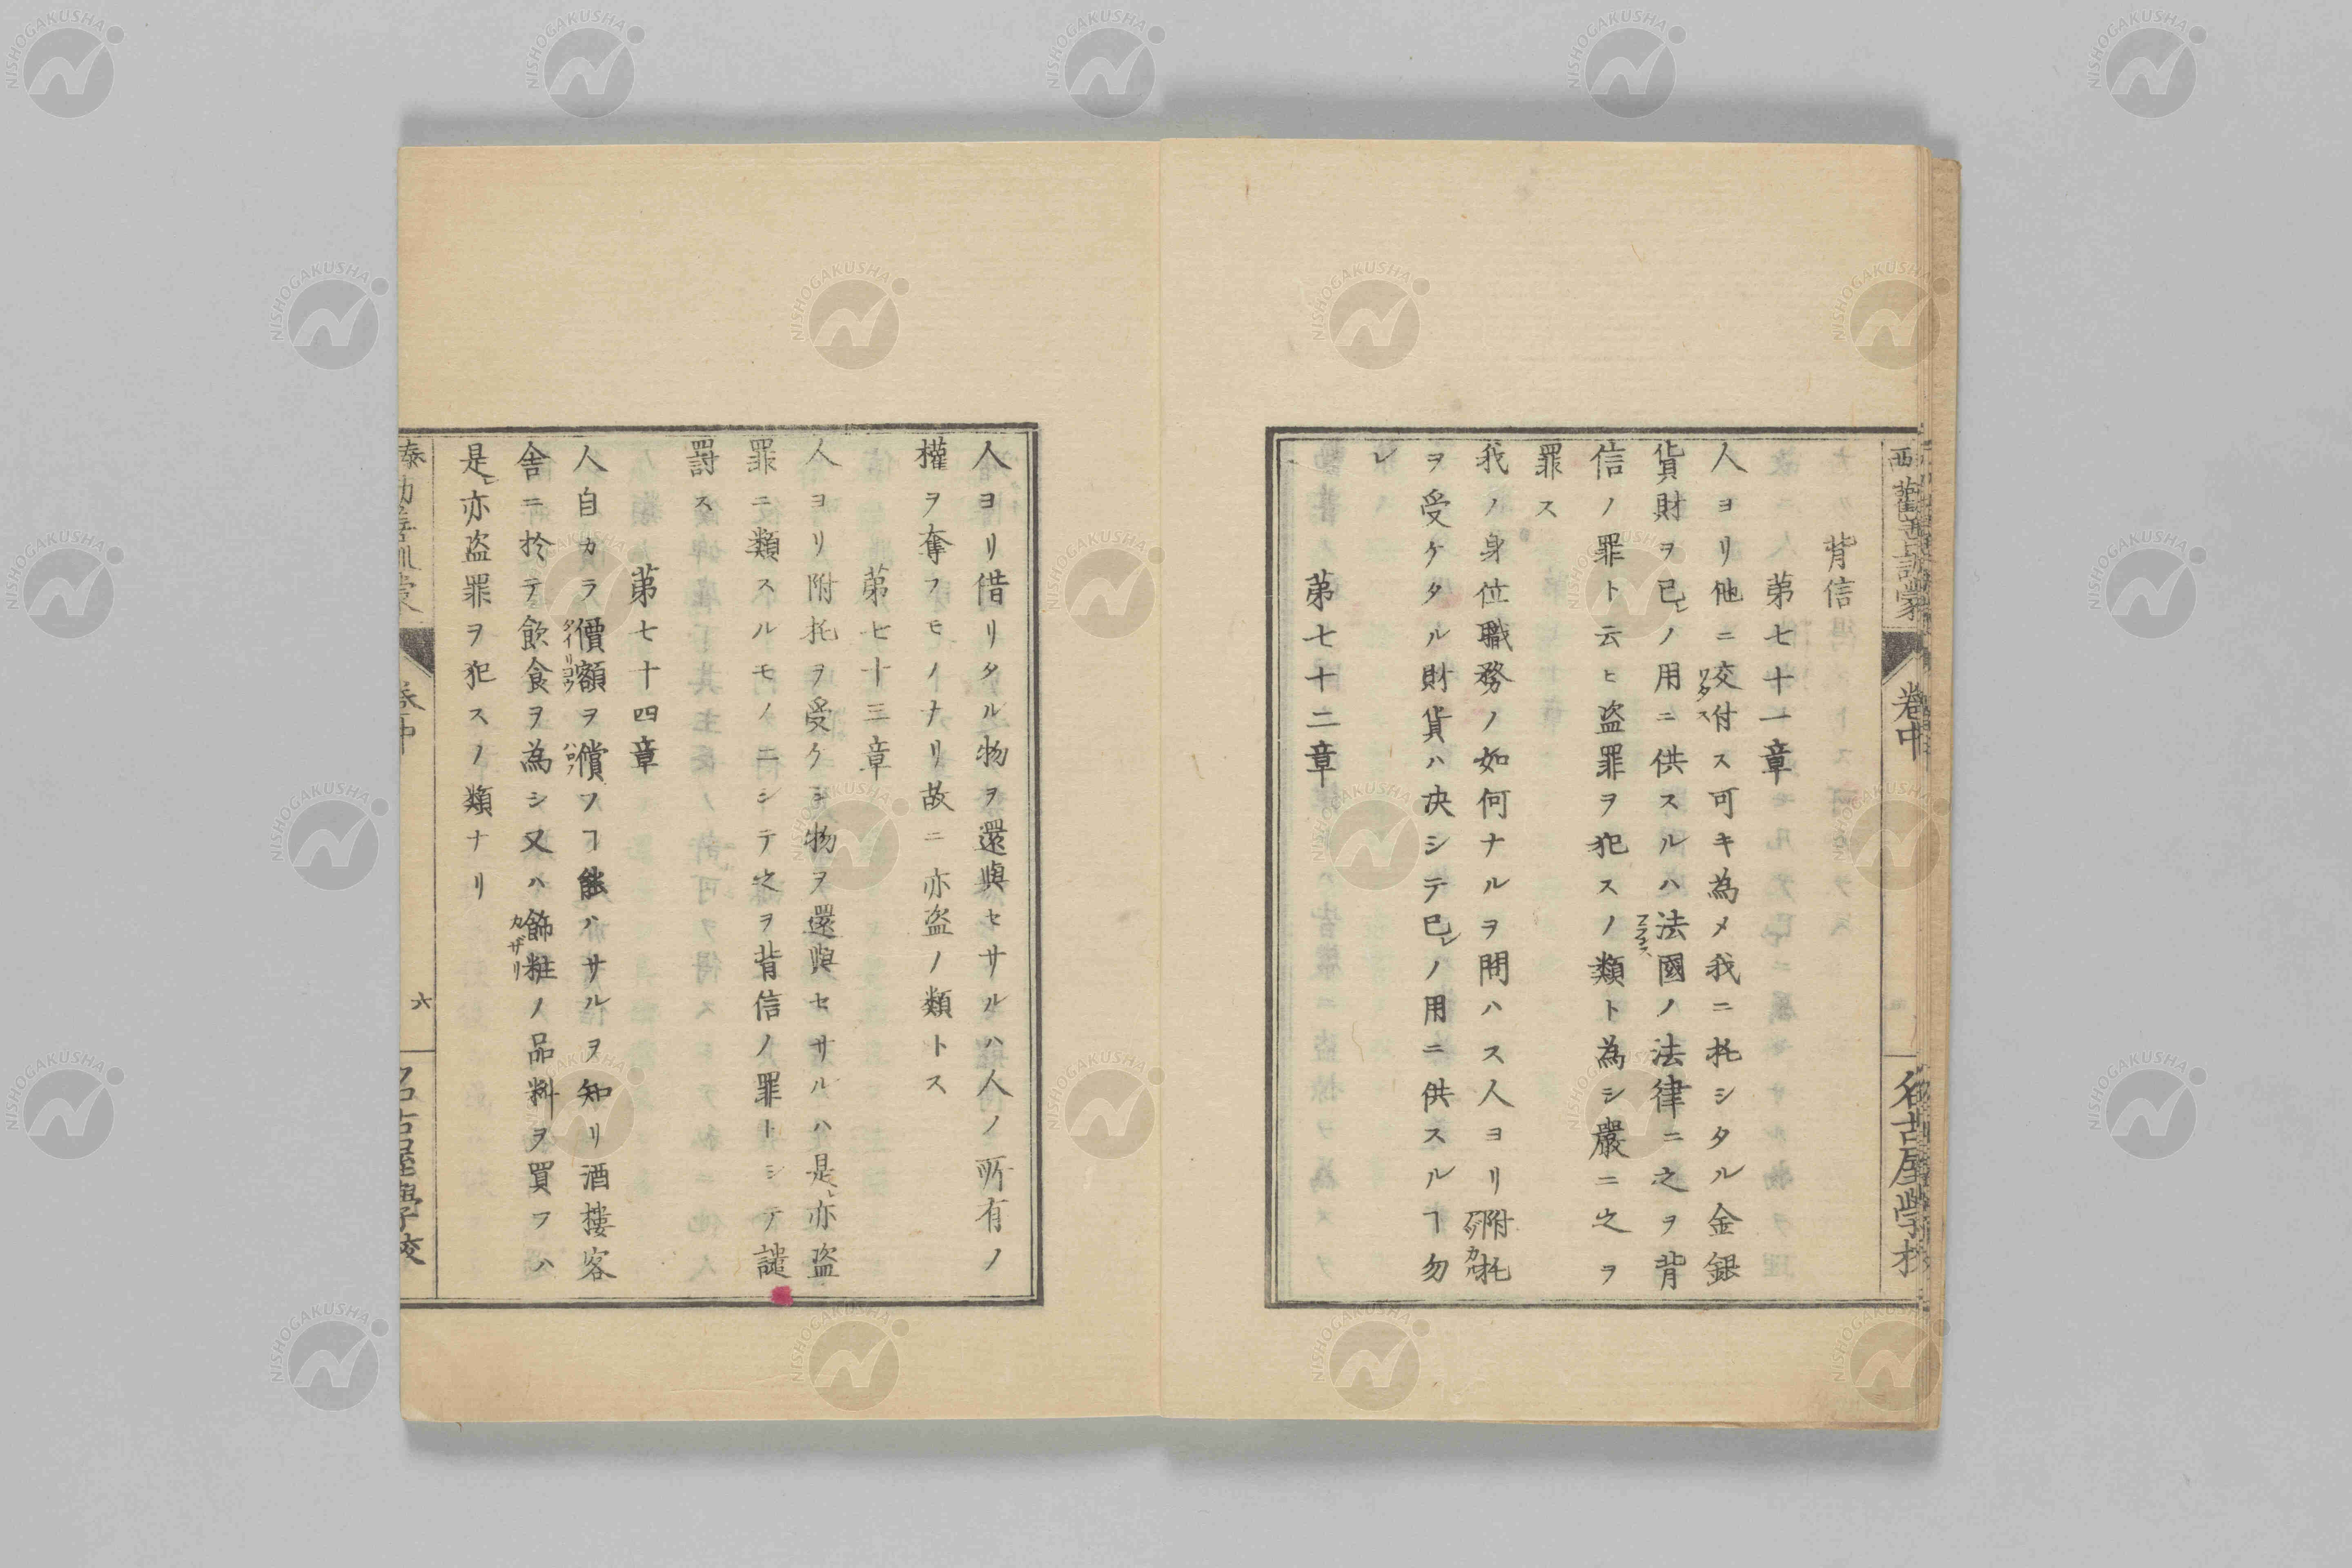 背信
第七十一章
人ヨリ他ニ交付ス可キ為メ我ニ托シタル金銀
ワタス
貨財ヲ已ノ用ニ供スルハ法國ノ法律ニ之ヲ背
フランス
信ノ罪ト云ヒ盗罪ヲ犯スノ類ト為シ嚴ニ之ヲ
罪ス
我ノ身位職務ノ如何ナルヲ問ハス人ヨリ附托
アツカル
ヲ受ケタル財貨ハ决シテ已レノ用ニ供スルヿ勿
レ
第七十二章
人ヨリ借リタル物ヲ還與セサルハ人ノ所有ノ
權ヲ奪フモノナリ故ニ亦盗ノ類トス
第七十三章
人ヨリ附托ヲ受ケシ物ヲ還與セサルハ是レ亦盗
罪ニ類スルモノニシテ之ヲ背信ノ罪トシテ譴
罸ス
第七十四章
人自カラ價額ヲ償フヿ能ハサルヲ知リ酒樓客
ハロフ
舎ニ於テ飲食ヲ為シ又ハ飾粧ノ品料ヲ買フハ
カザリ
是レ亦盗罪ヲ犯スノ類ナリ
西 勸善訓蒙 卷中 名古屋學校
泰 勸善訓蒙 卷中 六 名古屋學校
NISHOGAKUSHA